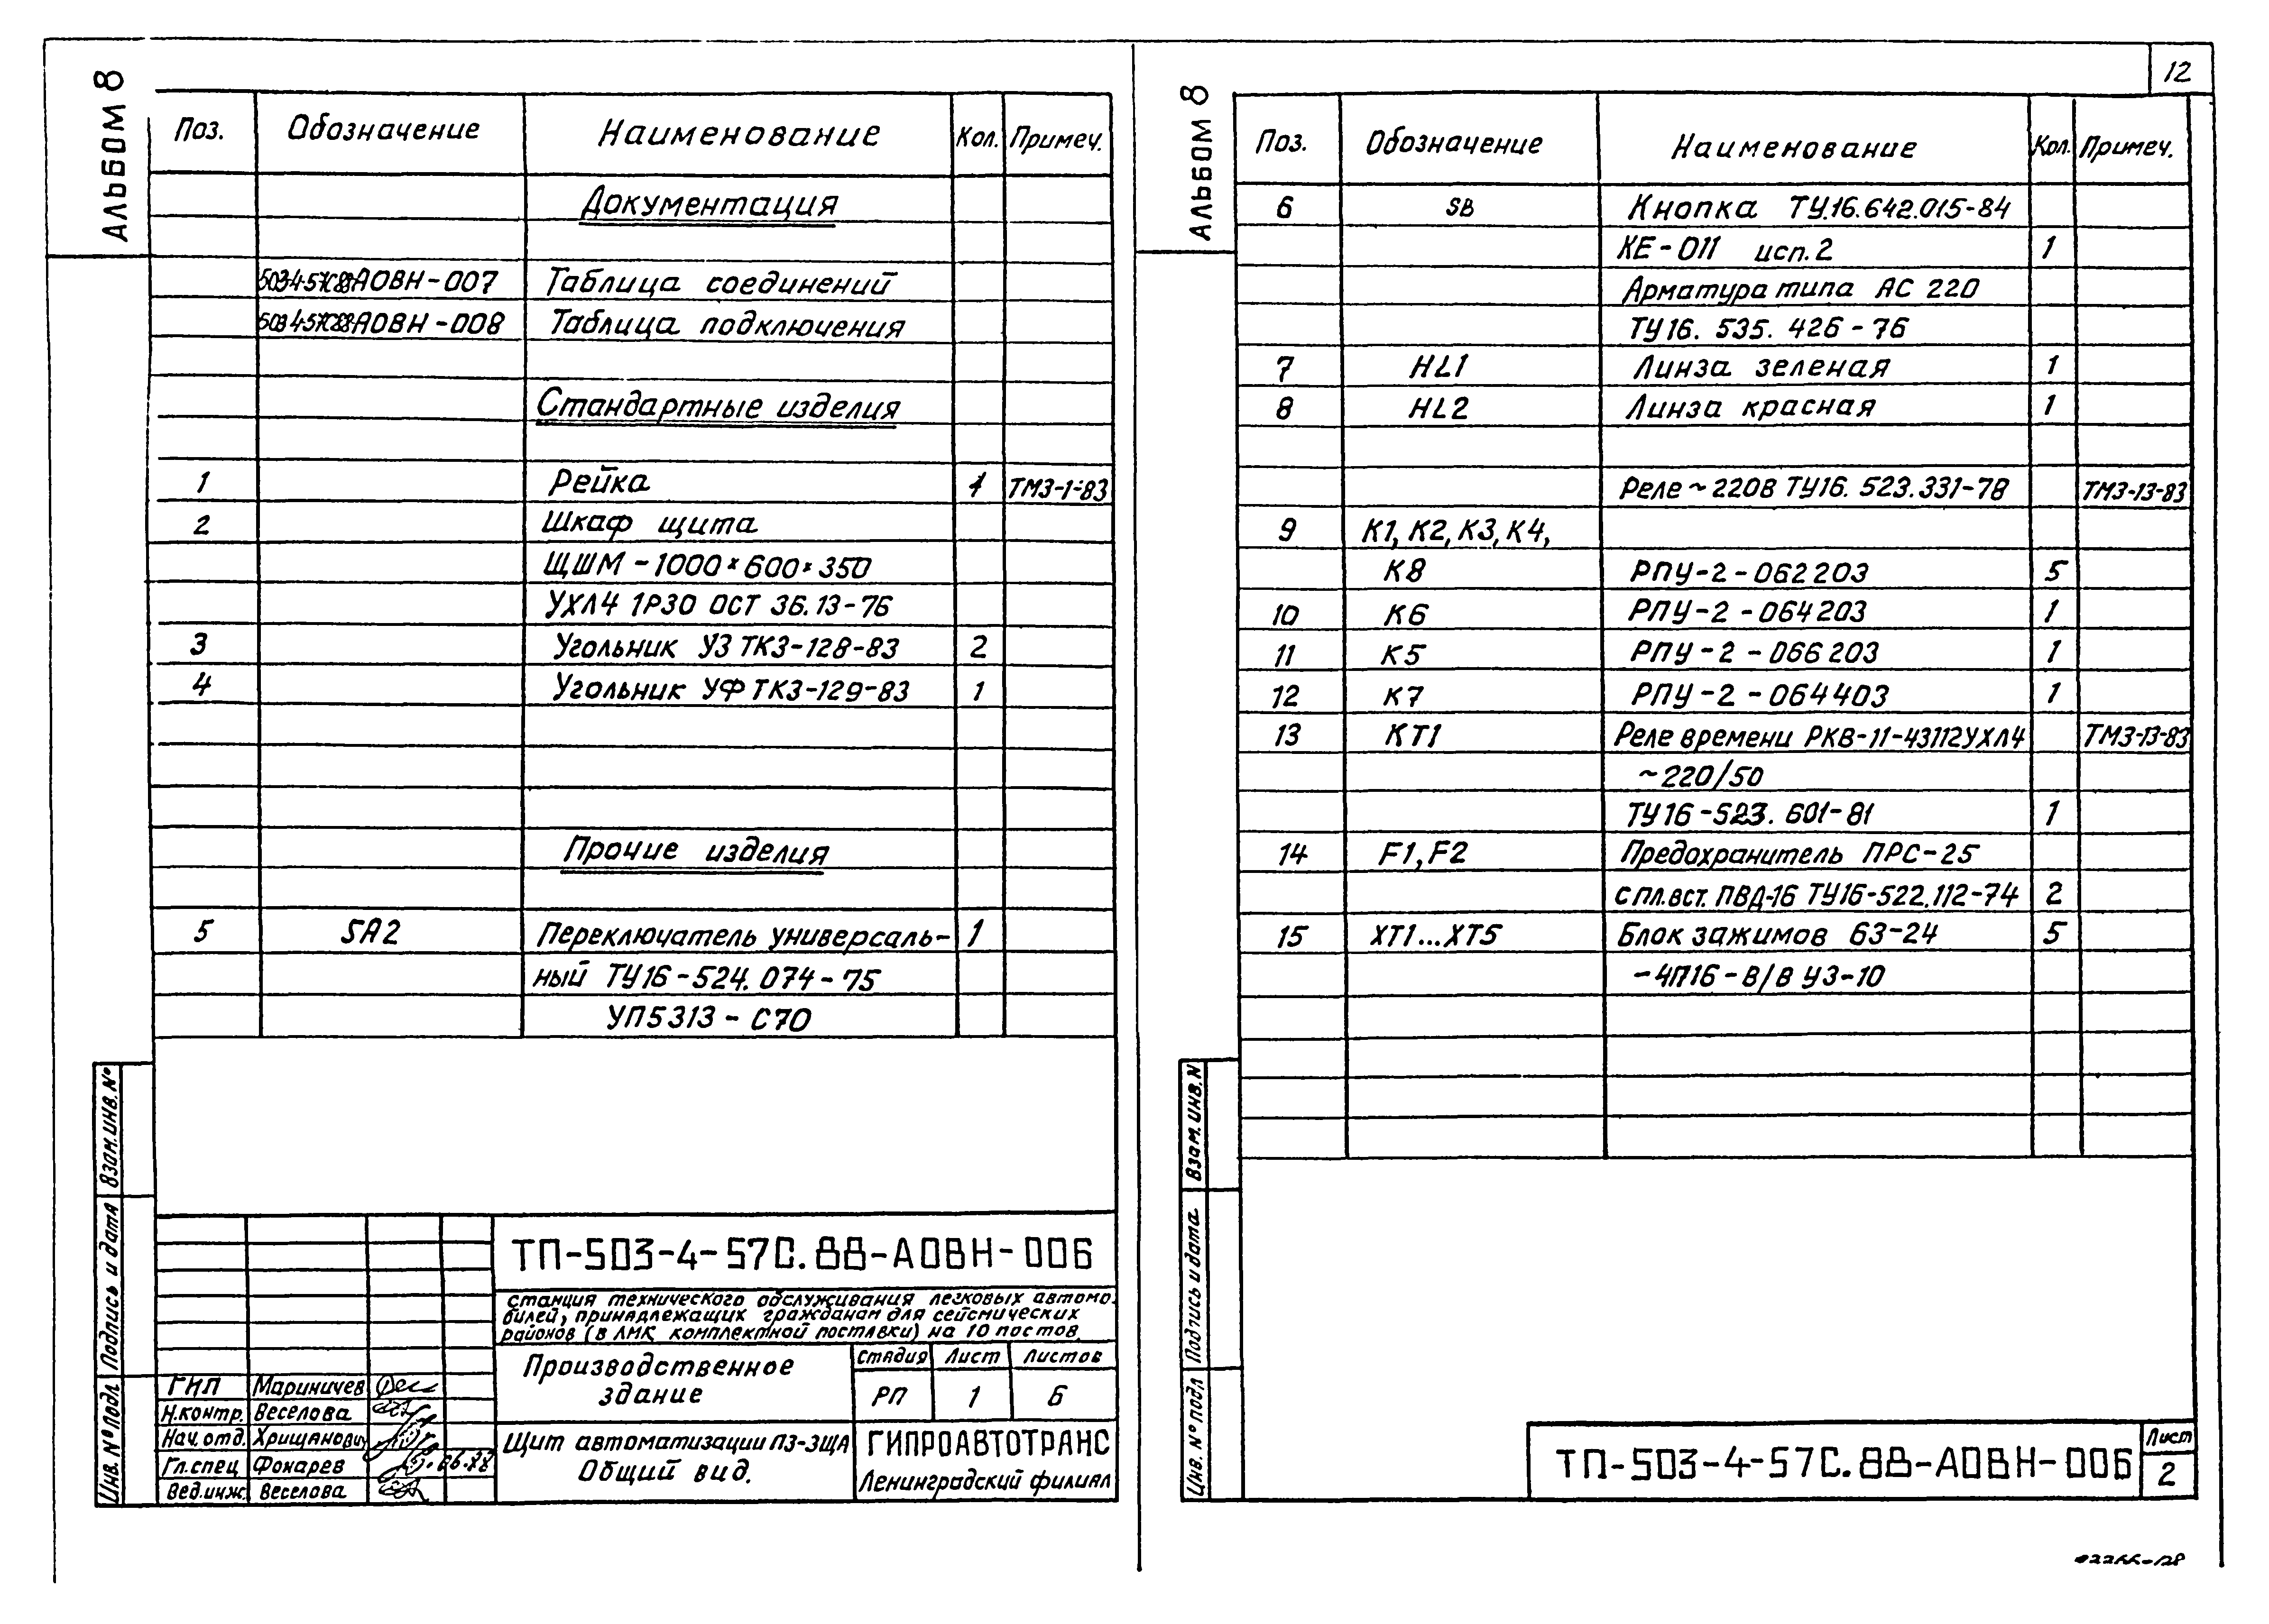 Альбом 8
Поз. Обозначение Наименование Кол. Примеч.
Документация
503-4-57С.88-АОВН-007 Таблица соединений
503-4-57С.88-АОВН-008 Таблица подключения
Стандартные изделия
1 Рейка 1 ТМ3-1-83
2 Шкаф щита
ЩШМ-1000×600×350
УХЛ4 1Р30 ОСТ 36.13-76
3 Угольник У3 ТК3-128-83 2
4 Угольник УФ ТК3-129-83 1
Прочие изделия
5 SA2 Переключатель универсаль- 1
ный ТУ16-524.074-75
УП5313-С70
Взам. инв. №
Подпись и дата
Инв. № подл
ТП-503-4-57С.88-АОВН-006
станция технического обслуживания легковых автомо-
билей, принадлежащих гражданам для сейсмических
районов (в ЛМК комплектной поставки) на 10 постов.
Производственное
здание
Стадия Лист Листов
РП 1 6
ГИП Мариничев
Н.контр. Веселова
Нач.отд. Хрищанович
Гл.спец Фокарев 06.88
Вед.инж. Веселова
Щит автоматизации П3-3ЩА
Общий вид.
ГИПРОАВТОТРАНС
Ленинградский филиал
12
Альбом 8
Поз. Обозначение Наименование Кол. Примеч.
6 SB Кнопка ТУ.16.642.015-84
КЕ-011 исп.2 1
Арматура типа АС 220
ТУ16.535.426-76
7 HL1 Линза зеленая 1
8 HL2 Линза красная 1
Реле ~220В ТУ16.523.331-78 ТМ3-13-83
9 К1, К2, К3, К4,
К8 РПУ-2-062203 5
10 К6 РПУ-2-064203 1
11 К5 РПУ-2-066203 1
12 К7 РПУ-2-064403 1
13 КТ1 Реле времени РКВ-11-43112УХЛ4 ТМ3-13-83
~220/50
ТУ16-523.601-81 1
14 F1, F2 Предохранитель ПРС-25
с пл.вст. ПВД-16 ТУ16-522.112-74 2
15 ХТ1...ХТ5 Блок зажимов Б3-24 5
-4П16-В/В У3-10
Взам. инв. N
Подпись и дата
Инв. № подл
ТП-503-4-57С.88-АОВН-006
Лист
2